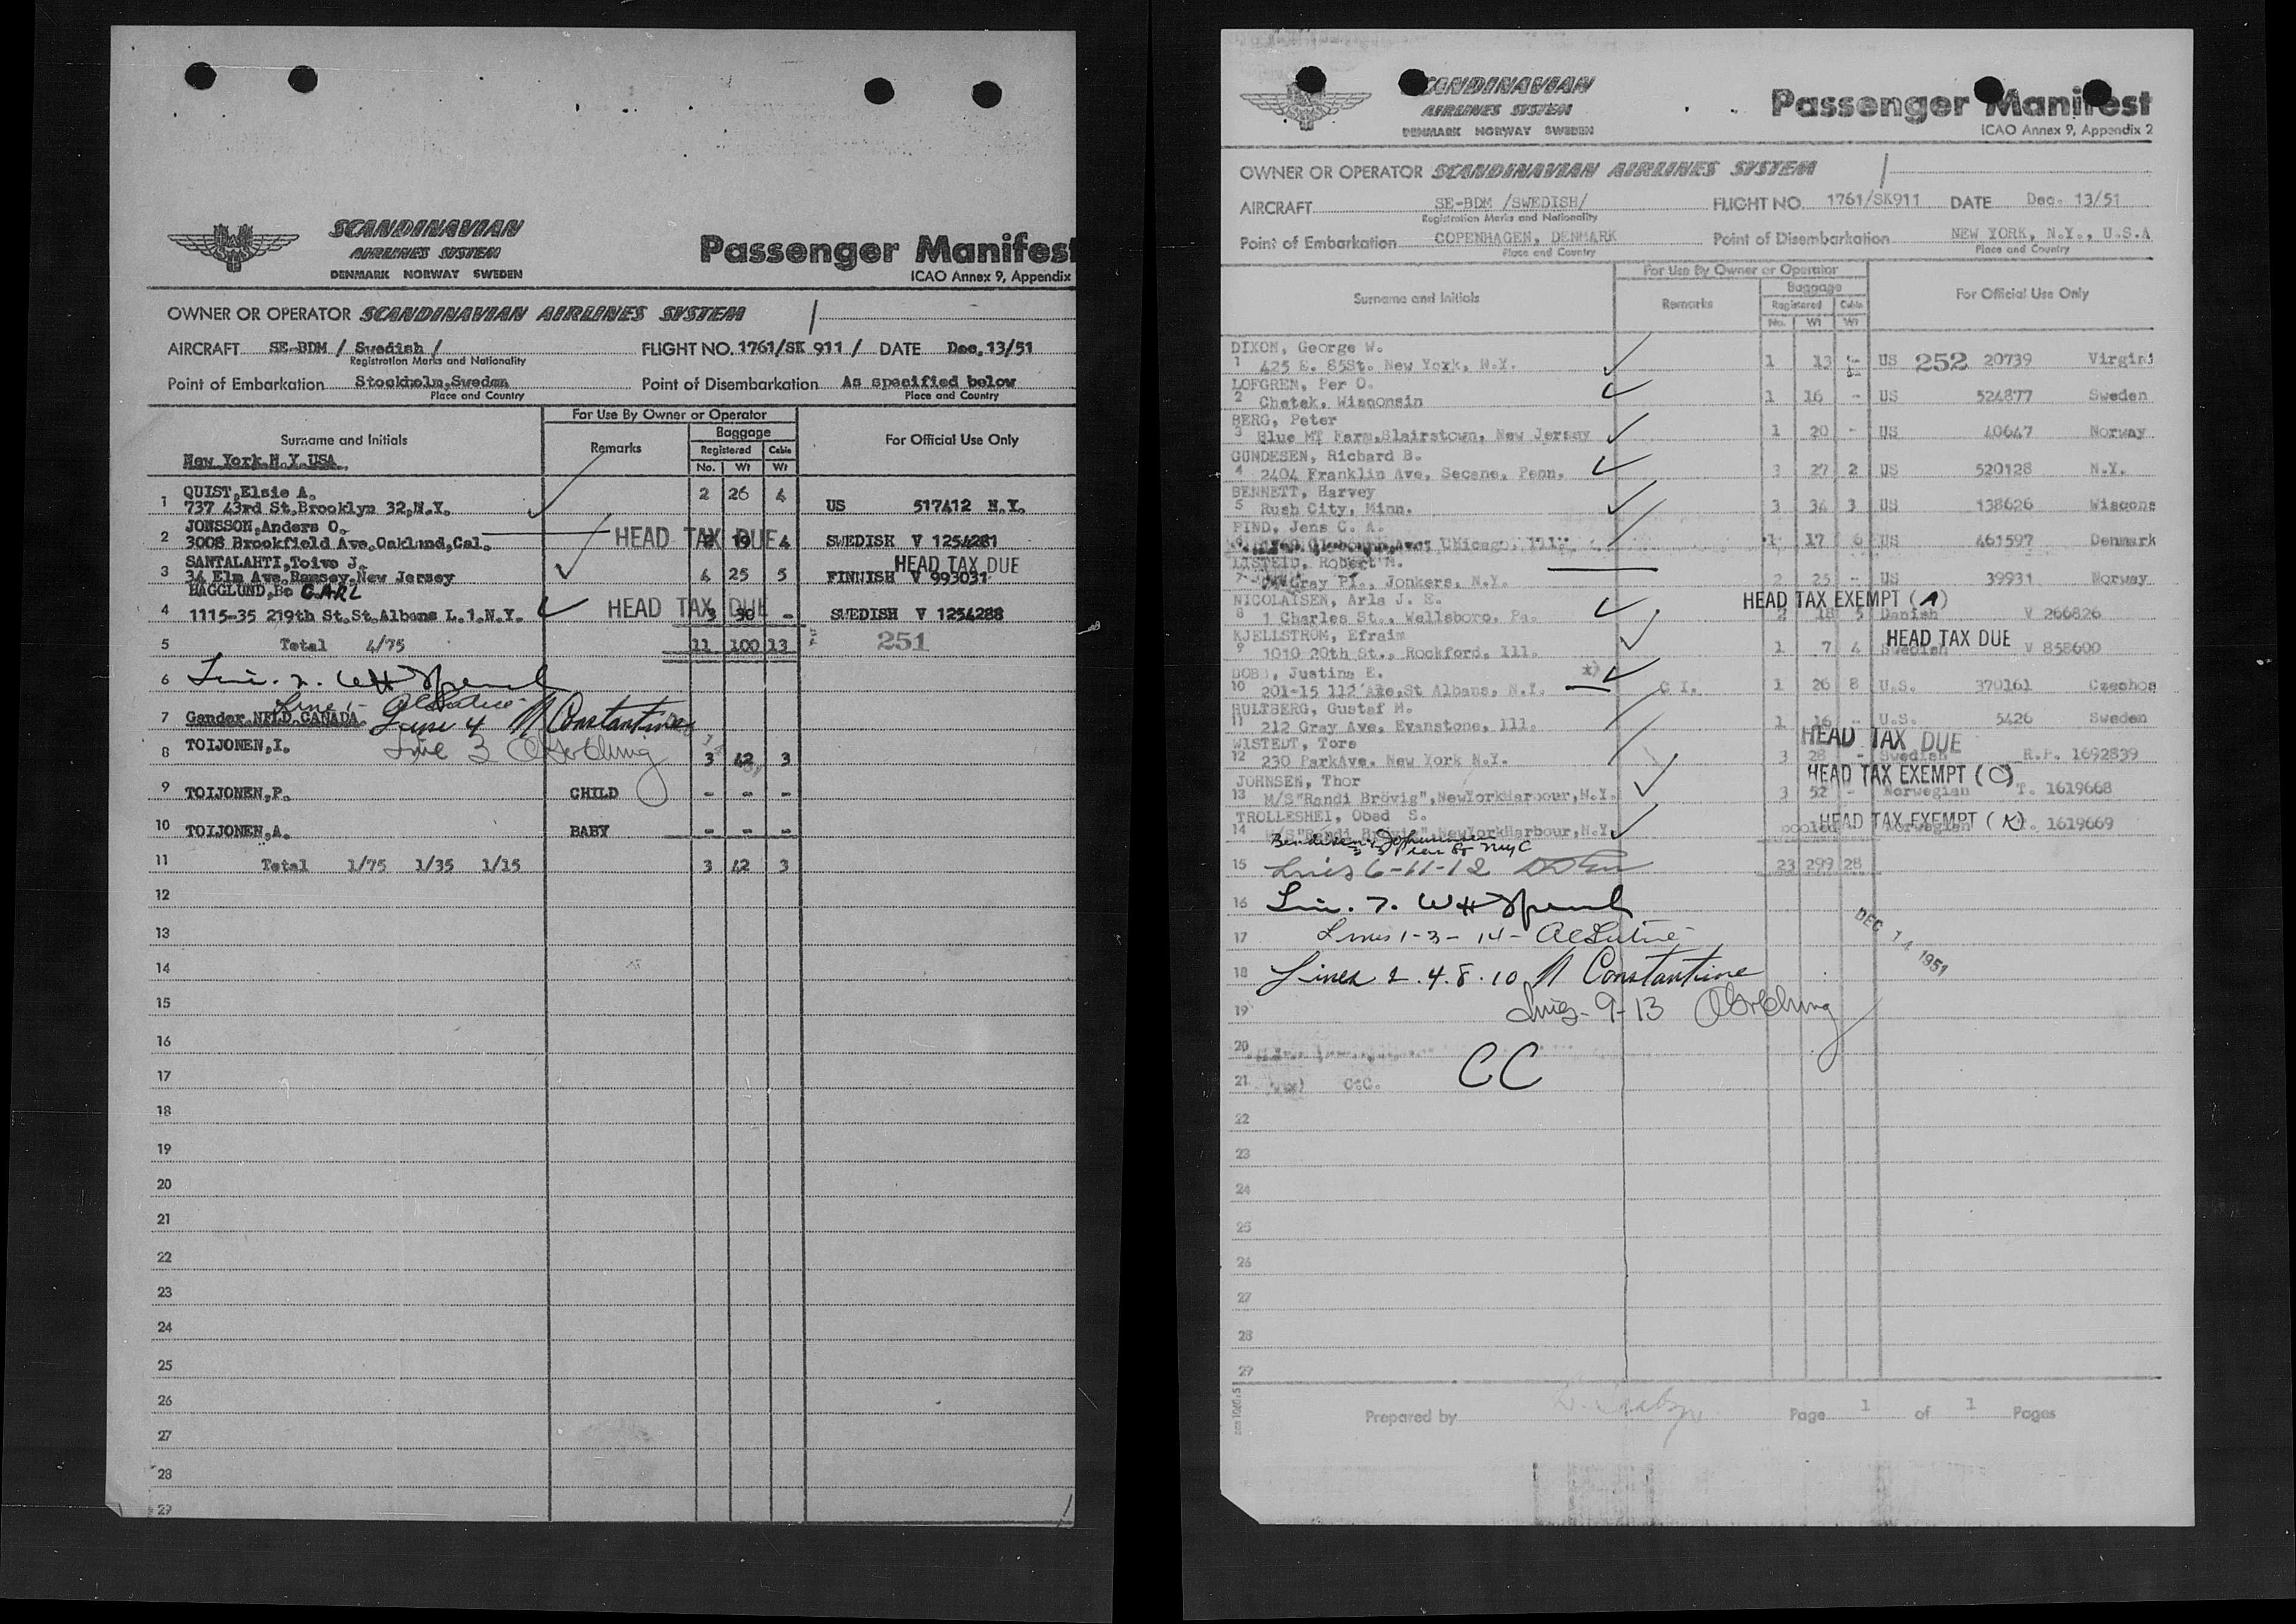 SCANDINAVIAN
AIRLINES SYSTEM
DENMARK NORWAY SWEDEN
Passenger Manifest
ICAO Annex 9, Appendix
OWNER OR OPERATOR SCANDINAVIAN AIRLINES SYSTEM
AIRCRAFT SE-BDM / Swedish / FLIGHT NO. 1761/SK 911 / DATE Dec, 13/51
Registration Marks and Nationality
Point of Embarkation Stockholm,Sweden Point of Disembarkation As specified below
Place and Country Place and Country
For Use By Owner or Operator
Surname and Initials Remarks Baggage For Official Use Only
Registered Cabin
No. Wt Wt
New York.N.Y.USA.
QUIST,Elsie A.
1 737 43rd St.Brooklyn 32,N.Y. 2 26 4 US 517412 N.Y.
JONSSON,Anders O.
2 3008 Brookfield Ave.Oakland,Cal. HEAD TAX DUE 2 19 4 SWEDISH V 1254281
SANTALAHTI,Toivo J. HEAD TAX DUE
3 34 Elm Ave.Ramsey.New Jersey 4 25 5 FINNISH V 993031
HAGGLUND,Bo CARL
4 1115-35 219th St.St.Albans L.1.N.Y. HEAD TAX DUE 3 30 - SWEDISH V 1254288
5 Total 4/75 11 100 13 251
6 Line. 2. WH
7 Gander.NFLD.CANADA. Line 4 N Constantine
8 TOIJONEN,I. Line 3 3 42 3
9 TOIJONEN,P. CHILD - - -
10 TOIJONEN,A. BABY - - -
11 Total 1/75 1/35 1/15 3 42 3
12
13
14
15
16
17
18
19
20
21
22
23
24
25
26
27
28
29
SCANDINAVIAN
AIRLINES SYSTEM
DENMARK NORWAY SWEDEN
Passenger Manifest
ICAO Annex 9, Appendix 2
OWNER OR OPERATOR SCANDINAVIAN AIRLINES SYSTEM
AIRCRAFT SE-BDM /SWEDISH/ FLIGHT NO. 1761/SK911 DATE Dec. 13/51
Registration Marks and Nationality
Point of Embarkation COPENHAGEN, DENMARK Point of Disembarkation NEW YORK, N.Y., U.S.A
Place and Country Place and Country
For Use By Owner or Operator
Surname and Initials Remarks Baggage For Official Use Only
Registered Cabin
No. Wt Wt
DIXON, George W.
1 425 E. 85St. New York, N.Y. 1 13 - US 252 20739 Virgini
LOFGREN, Per O.
2 Chetek, Wisconsin 1 16 - US 524877 Sweden
BERG, Peter
3 Blue MT Farm,Blairstown, New Jersey 1 20 - US 40647 Norway
GUNDESEN, Richard B.
4 2404 Franklin Ave, Secane, Penn. 3 27 2 US 520128 N.Y.
BENNETT, Harvey
5 Rush City, Minn. 3 34 3 US 138626 Wiscons
FIND, Jens C. A.
Ave, Chicago, Ill. 1 17 6 US 461597 Denmark
LISTEID, Robert M.
7 Gray Pl., Jonkers, N.Y. 2 25 - US 39931 Norway
NICOLAISEN, Arls J. E. HEAD TAX EXEMPT (A)
8 1 Charles St., Wellsboro, Pa. 2 18 5 Danish V 266826
KJELLSTROM, Efraim HEAD TAX DUE
9 1010 20th St., Rockford, Ill. 1 7 4 Swedish V 858600
DOBD, Justina E. *)
10 201-15 112 Ave,St Albans, N.Y. C I. 1 26 8 U.S. 370161 Czechos
HULTBERG, Gustaf M.
11 212 Gray Ave, Evanstone, Ill. 1 16 - U.S. 5426 Sweden
WISTEDT, Tore HEAD TAX DUE
12 230 ParkAve. New York N.Y. 3 28 - Swedish R.P. 1692839
JOHNSEN, Thor HEAD TAX EXEMPT (C)
13 M/S"Randi Brövig",NewYorkHarbour,N.Y. 3 52 - Norwegian T. 1619668
TROLLESHEI, Obed S.
14 M/S"Randi Brövig",NewYorkHarbour,N.Y. pooled HEAD TAX EXEMPT (K) Norwegian T. 1619669
15 Lines 6-11-12 23 299 28
16 Lin. 7. WH
17 Lines 1-3-14-
18 Lines 2.4.8.10 N Constantine
DEC 14 1951
19 Lines-9-13
20
21 C.C. CC
22
23
24
25
26
27
28
29
Prepared by Page 1 of 1 Pages